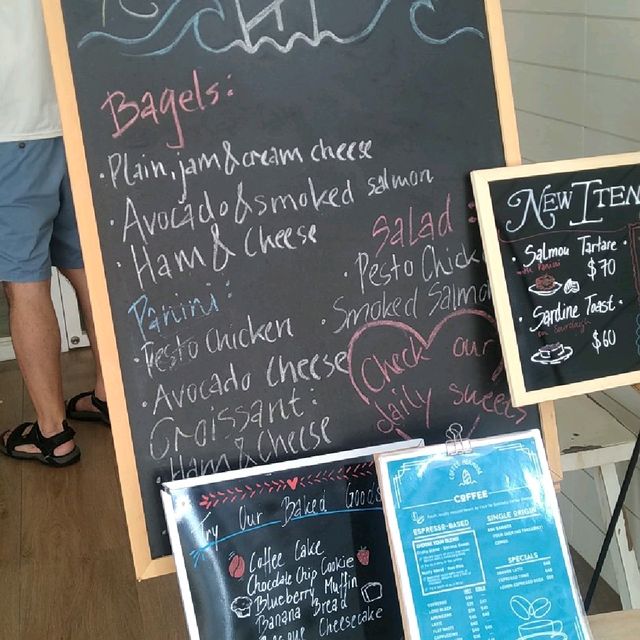 Bagels:
·Plain, jam & cream cheese
·Avocado & smoked salmon
·Ham & Cheese
Panini:
·Pesto Chicken
·Avocado Cheese
Croissant:
·Ham & Cheese
Salad:
·Pesto Chick
·Smoked Salmo
Check our
daily sweets
NEW ITEM
·Salmon Tartare·
$70
·Sardine Toast·
$60
Try Our Baked Goods
Coffee Cake
Chocolate Chip Cookie
Blueberry Muffin
Banana Bread
Cheesecake
COFFEE
ESPRESSO-BASED
SINGLE ORIGIN
SPECIALS
ESPRESSO
LONG BLACK
LATTE
FLAT WHITE
CAPPUCCINO